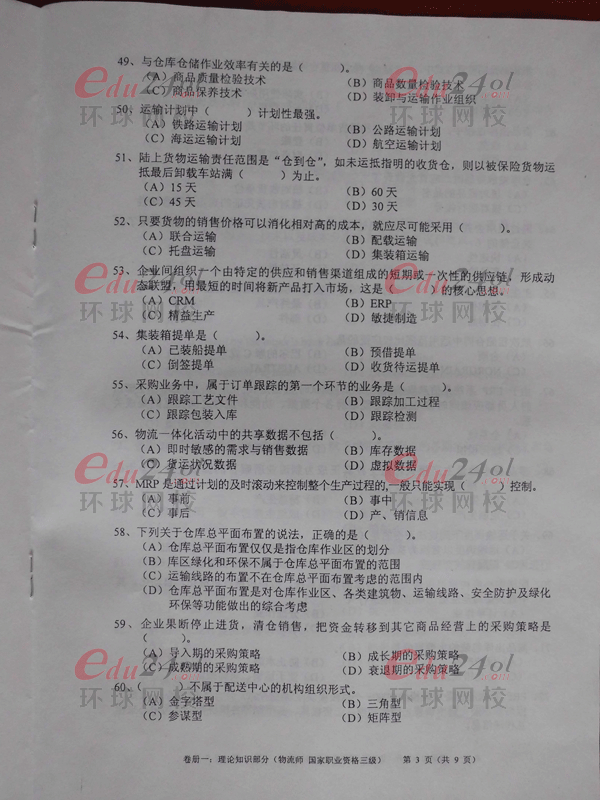 49、与仓库仓储作业效率有关的是（　　）。
（A）商品质量检验技术 （B）商品数量检验技术
（C）商品保养技术 （D）装卸与运输作业组织
50、运输计划中（　　）计划性最强。
（A）铁路运输计划 （B）公路运输计划
（C）海运运输计划 （D）航空运输计划
51、陆上货物运输责任范围是“仓到仓”，如未运抵指明的收货仓，则以被保险货物运
抵最后卸载车站满（　　）为止。
（A）15 天 （B）60 天
（C）45 天 （D）30 天
52、只要货物的销售价格可以消化相对高的成本，就应尽可能采用（　　）。
（A）联合运输 （B）配载运输
（C）托盘运输 （D）集装箱运输
53、企业间组织一个由特定的供应和销售渠道组成的短期或一次性的供应链，形成动
态联盟，用最短的时间将新产品打入市场，这是（　　）的核心思想。
（A）CRM （B）ERP
（C）精益生产 （D）敏捷制造
54、集装箱提单是（　　）。
（A）已装船提单 （B）预借提单
（C）倒签提单 （D）收货待运提单
55、采购业务中，属于订单跟踪的第一个环节的业务是（　　）。
（A）跟踪工艺文件 （B）跟踪加工过程
（C）跟踪包装入库 （D）跟踪检测
56、物流一体化活动中的共享数据不包括（　　）。
（A）即时敏感的需求与销售数据 （B）库存数据
（C）货运状况数据 （D）虚拟数据
57、MRP 是通过计划的及时滚动来控制整个生产过程的,一般只能实现（　　）控制。
（A）事前 （B）事中
（C）事后 （D）产、销信息
58、下列关于仓库总平面布置的说法，正确的是（　　）。
（A）仓库总平面布置仅仅是指仓库作业区的划分
（B）库区绿化和环保不属于仓库总平面布置的范围
（C）运输线路的布置不在仓库总平面布置考虑的范围内
（D）仓库总平面布置是对仓库作业区、各类建筑物、运输线路、安全防护及绿化
环保等功能做出的综合考虑
59、企业果断停止进货，清仓销售，把资金转移到其它商品经营上的采购策略是
（　　）。
（A）导入期的采购策略 （B）成长期的采购策略
（C）成熟期的采购策略 （D）衰退期的采购策略
60、（　　）不属于配送中心的机构组织形式。
（A）金字塔型 （B）三角型
（C）参谋型 （D）矩阵型
卷册一：理论知识部分（物流师 国家职业资格三级） 第 3 页（共 9 页）
edu24ol
环球网校
edu24ol
环球网校
edu24ol
环球网校
edu24ol
环球网校
edu24ol
环球网校
edu24ol
环球网校
edu24ol
环球网校
edu24ol
环球网校